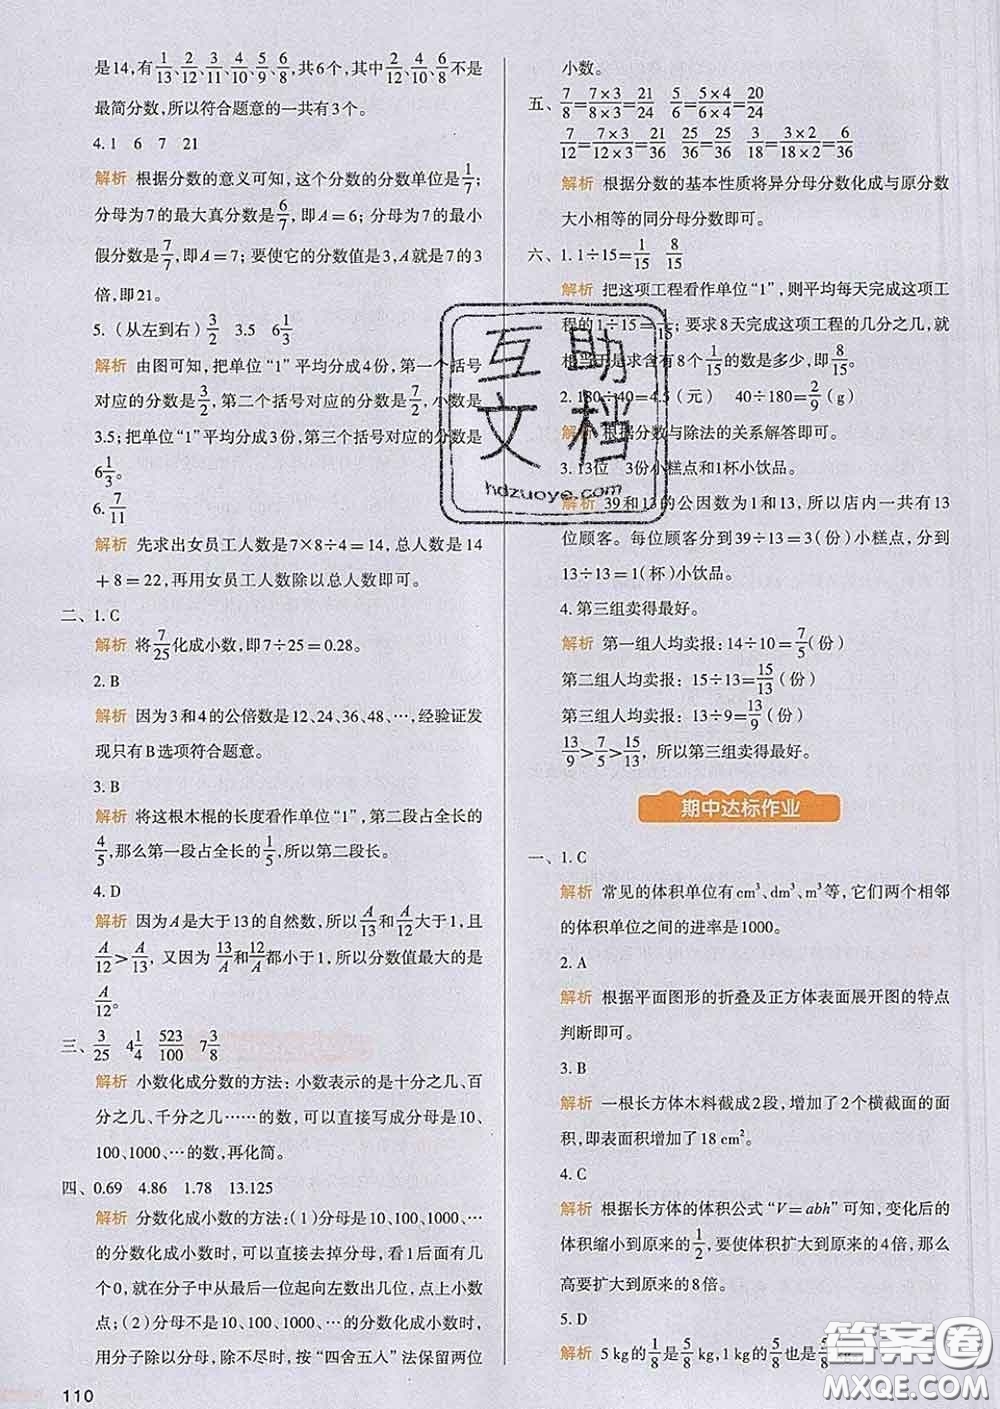 是14,有1/13、2/12、3/11、4/10、5/9、6/8,共6个,其中2/12、4/10、6/8不是
最简分数,所以符合题意的一共有3个。
4. 1 6 7 21
解析 根据分数的意义可知,这个分数的分数单位是1/7;
分母为7的最大真分数是6/7,即A=6;分母为7的最小
假分数是7/7,即A=7;要使它的分数值是3,A就是7的3
倍,即21。
5.(从左到右)3/2 3.5 6 1/3
解析 由图可知,把单位“1”平均分成4份,第一个括号
对应的分数是3/2,第二个括号对应的分数是7/2,小数是
3.5;把单位“1”平均分成3份,第三个括号对应的分数是
6 1/3。
6. 7/11
解析 先求出女员工人数是7×8÷4=14,总人数是14
+8=22,再用女员工人数除以总人数即可。
二、1. C
解析 将7/25化成小数,即7÷25=0.28。
2. B
解析 因为3和4的公倍数是12、24、36、48、…,经验证发
现只有B选项符合题意。
3. B
解析 将这根木棍的长度看作单位“1”,第二段占全长的
4/5,那么第一段占全长的1/5,所以第二段长。
4. D
解析 因为A是大于13的自然数,所以A/13和A/12大于1,且
A/12>A/13,又因为13/A和12/A都小于1,所以分数值最大的是
A/12。
三、3/25 4 1/4 523/100 7 3/8
解析 小数化成分数的方法:小数表示的是十分之几、百
分之几、千分之几……的数,可以直接写成分母是10、
100、1000、…的数,再化简。
四、0.69 4.86 1.78 13.125
解析 分数化成小数的方法:(1)分母是10、100、1000、…
的分数化成小数时,可以直接去掉分母,看1后面有几
个0,就在分子中从最后一位起向左数出几位,点上小数
点;(2)分母不是10、100、1000、…的分数化成小数时,
用分子除以分母,除不尽时,按“四舍五人”法保留两位
110
小数。
五、7/8=7×3/8×3=21/24 5/6=5×4/6×4=20/24
7/12=7×3/12×3=21/36 3/18=3×2/18×2=6/36
解析 根据分数的基本性质将异分母分数化成与原分数
大小相等的同分母分数即可。
六、1. 1÷15=1/15 8/15
解析 把这项工程看作单位“1”,则平均每天完成这项工
程的1÷15=1/15;要求8天完成这项工程的几分之几,就
相当于是求含有8个1/15的数是多少,即8/15。
2. 180÷40=4.5(元) 40÷180=2/9(g)
解析 根据分数与除法的关系解答即可。
3. 13位 3份小糕点和1杯小饮品。
解析 39和13的公因数为1和13,所以店内一共有13
位顾客。每位顾客分到39÷13=3(份)小糕点,分到
13÷13=1(杯)小饮品。
4. 第三组卖得最好。
解析 第一组人均卖报:14÷10=7/5(份)
第二组人均卖报:15÷13=15/13(份)
第三组人均卖报:13÷9=13/9(份)
13/9>7/5>15/13,所以第三组卖得最好。
期中达标作业
一、1. C
解析 常见的体积单位有cm³、dm³、m³等,它们两个相邻
的体积单位之间的进率是1000。
2. A
解析 根据平面图形的折叠及正方体表面展开图的特点
判断即可。
3. B
解析 一根长方体木料截成2段,增加了2个横截面的面
积,即表面积增加了18 cm²。
4. C
解析 根据长方体的体积公式“V=abh”可知,变化后的
体积缩小到原来的1/2,要使体积扩大到原来的4倍,那么
高要扩大到原来的8倍。
5. D
解析 5 kg的1/8是5/8 kg,1 kg的5/8也是5/8 kg
互助
文档
hdzuoye.com
答案圈
MXQE.COM